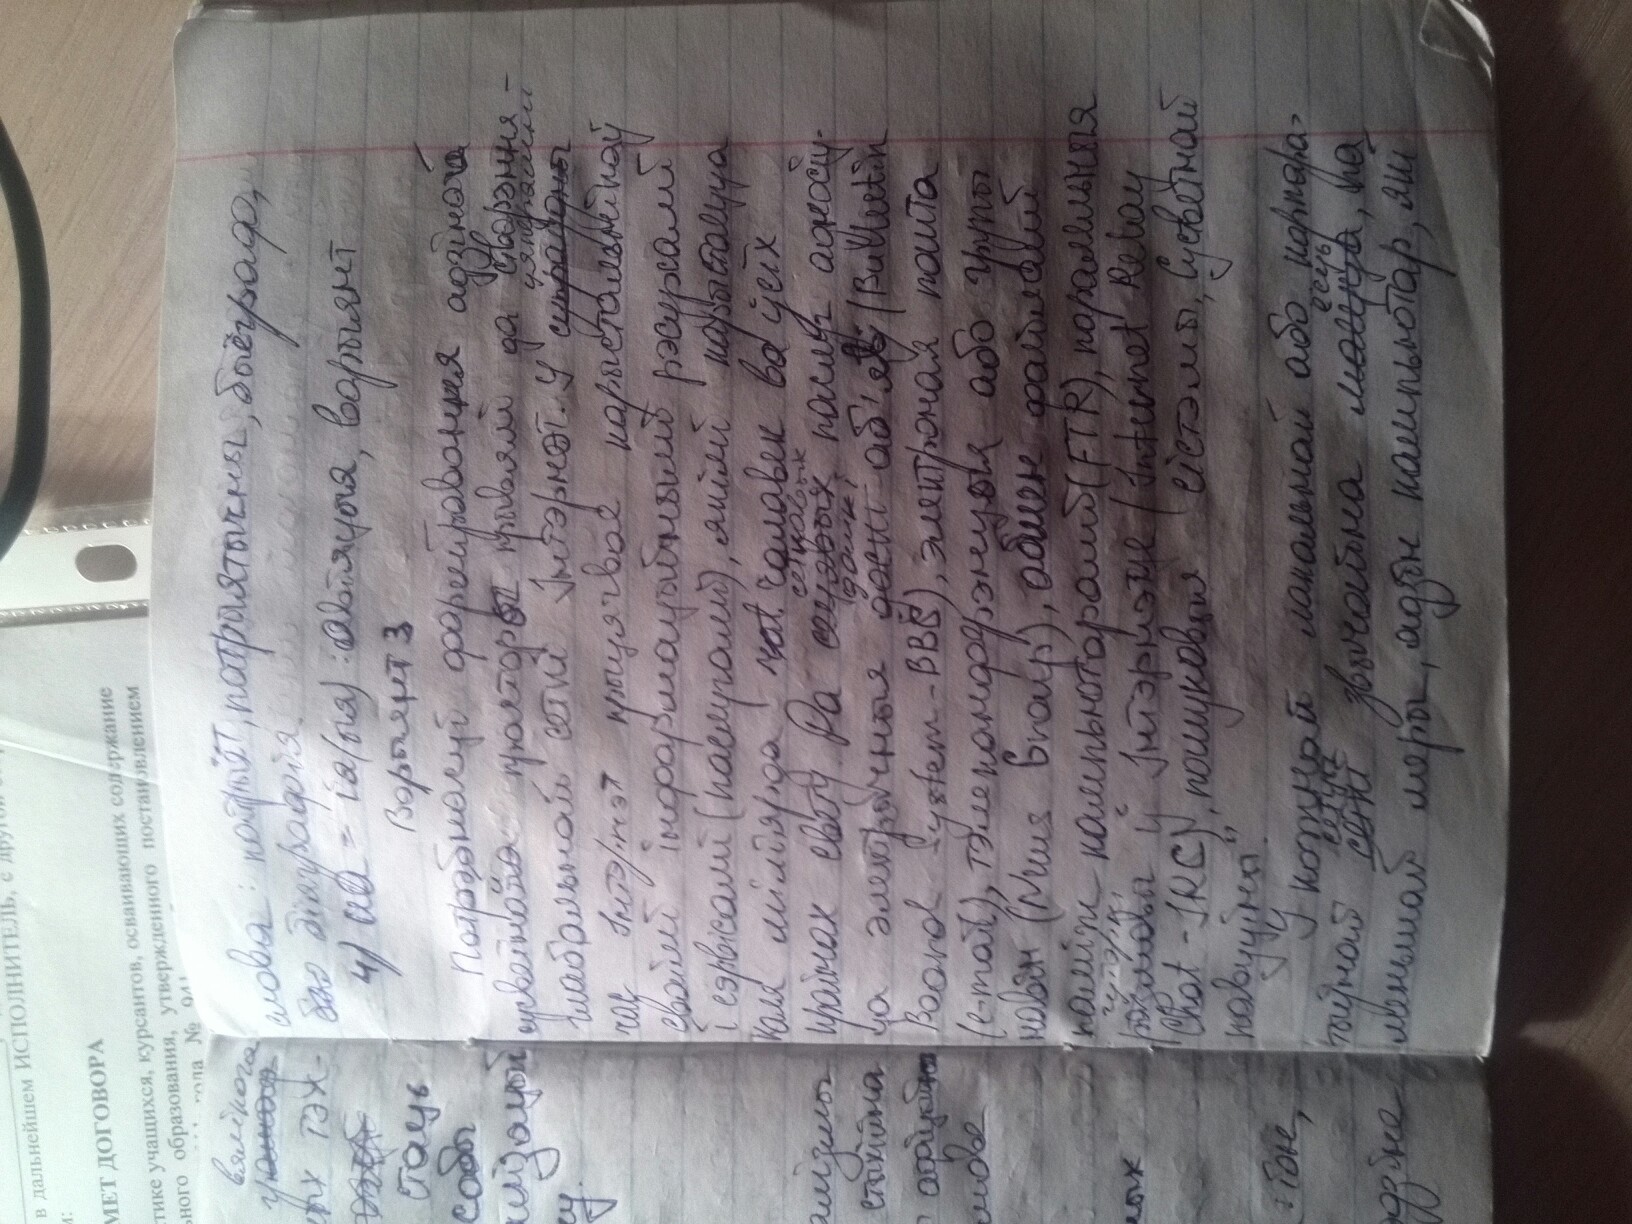 в дальнейшем ИСПОЛНИТЕЛЬ, с другой
м:
МЕТ ДОГОВОРА
ктике учащихся, курсантов, осваивающих содержание
ьного образования, утвержденного постановлением
года № 941
вялікага
ых тэх-
стаць
собы
алізмы
стыхійна
мове
ных
тоне,
слова: патрыёт, патрыятычны, біёграф,
біяграфія.
4) иа = іа(ыя): Авіяцыя, варыянт
Варыянт 3
Патрэбнасці фарміравання адзінага
сусветнага прасторы прывялі да стварэння
цяперашні
глабальнай сеткі Інтэрнэт. У супраўдны
час Інтэрнэт прыцягвае карыстальнікаў
сваімі інфармацыйнымі рэсурсамі
і сэрвісамі (паслугамі), якімі карыстаюцца
каля мільярда чалавек ва ўсіх
сеткавых
краінах свету. Да сецявых паслуг адносіц-
дошкі
ца электрычныя доскі аб'яў (Bulletin
Board System - BBS), электроная пошта
(e-mail), тэлеканферэнцыя або групы
навін (News Group), абмен файламі
паміж кампьютарамі (FTR), паралельныя
гутаркі
размовы ў Інтэрнэтце (Internet Relay
Chat - IRC), пошукавыя сістэмы, Сусветнай
павуціны".
У кожнай лакальнай або карпара-
сетцы есць
тыўнай сеткі звычайна маецца, па
меньшай меры, адзін кампьютар, які